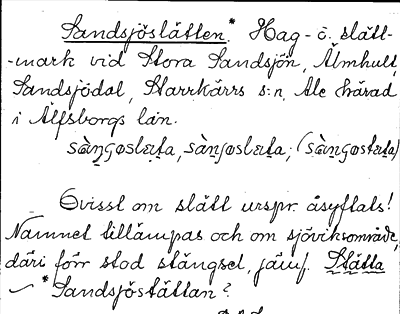 Sandsjöslätten.* Hag- o. slätt-
-mark vid Stora Sandsjön, Älmhult,
Sandsjödal, Starrkärrs s:n, Ale härad
i Älfsborgs län.
Ovisst om slätt urspr. åsyftats!
Namnet tillämpas och om sjövikområde,
däri förr stod stängsel, jämf. Stätta
*Sandsjöstättan?